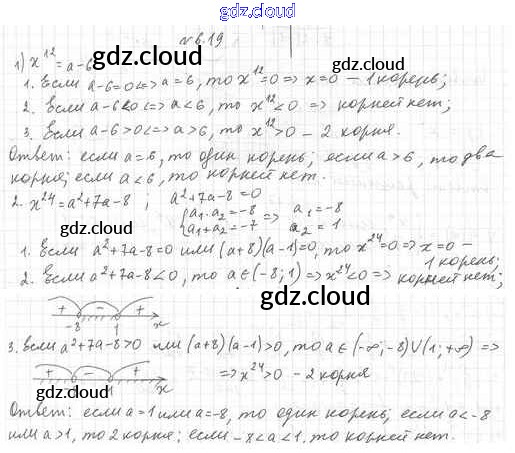 gdz.cloud
№6.19
1) x¹² = a-6 gdz.cloud gdz.cloud
1. Если a-6=0 <=> a=6, то x¹²=0 => x=0 – 1 корень;
2. Если a-6<0 <=> a<6, то x¹²<0 => корней нет;
3. Если a-6>0 <=> a>6, то x¹²>0 – 2 корня.
Ответ: если a=6, то один корень; если a>6, то два
корня; если a<6, то корней нет.
2. x²⁴=a²+7a-8; a²+7a-8=0
{a₁·a₂=-8 => a₁=-8
{a₁+a₂=-7 a₂=1
1. Если a²+7a-8=0 или (a+8)(a-1)=0, то x²⁴=0 => x=0 –
1 корень;
2. Если a²+7a-8<0, то a∈(-8;1) => x²⁴<0 => корней нет;
+ - + gdz.cloud
-8 1 x
3. Если a²+7a-8>0 или (a+8)(a-1)>0, то a∈(-∞;-8)∪(1;+∞) =>
+ - + => x²⁴>0 – 2 корня
-8 1 x
gdz.cloud gdz.cloud
Ответ: если a=1 или a=-8, то один корень; если a<-8
или a>1, то 2 корня; если -8<a<1, то корней нет.